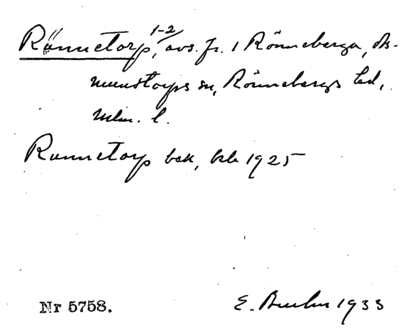 Rönnetorp, 1-2/ avs. fr. 1 Rönneberga, As-
mundtorps sn, Rönnebergs hd,
Mlm. l.
Rönnetorp bek, kb 1925
Nr 5758. E. 1933